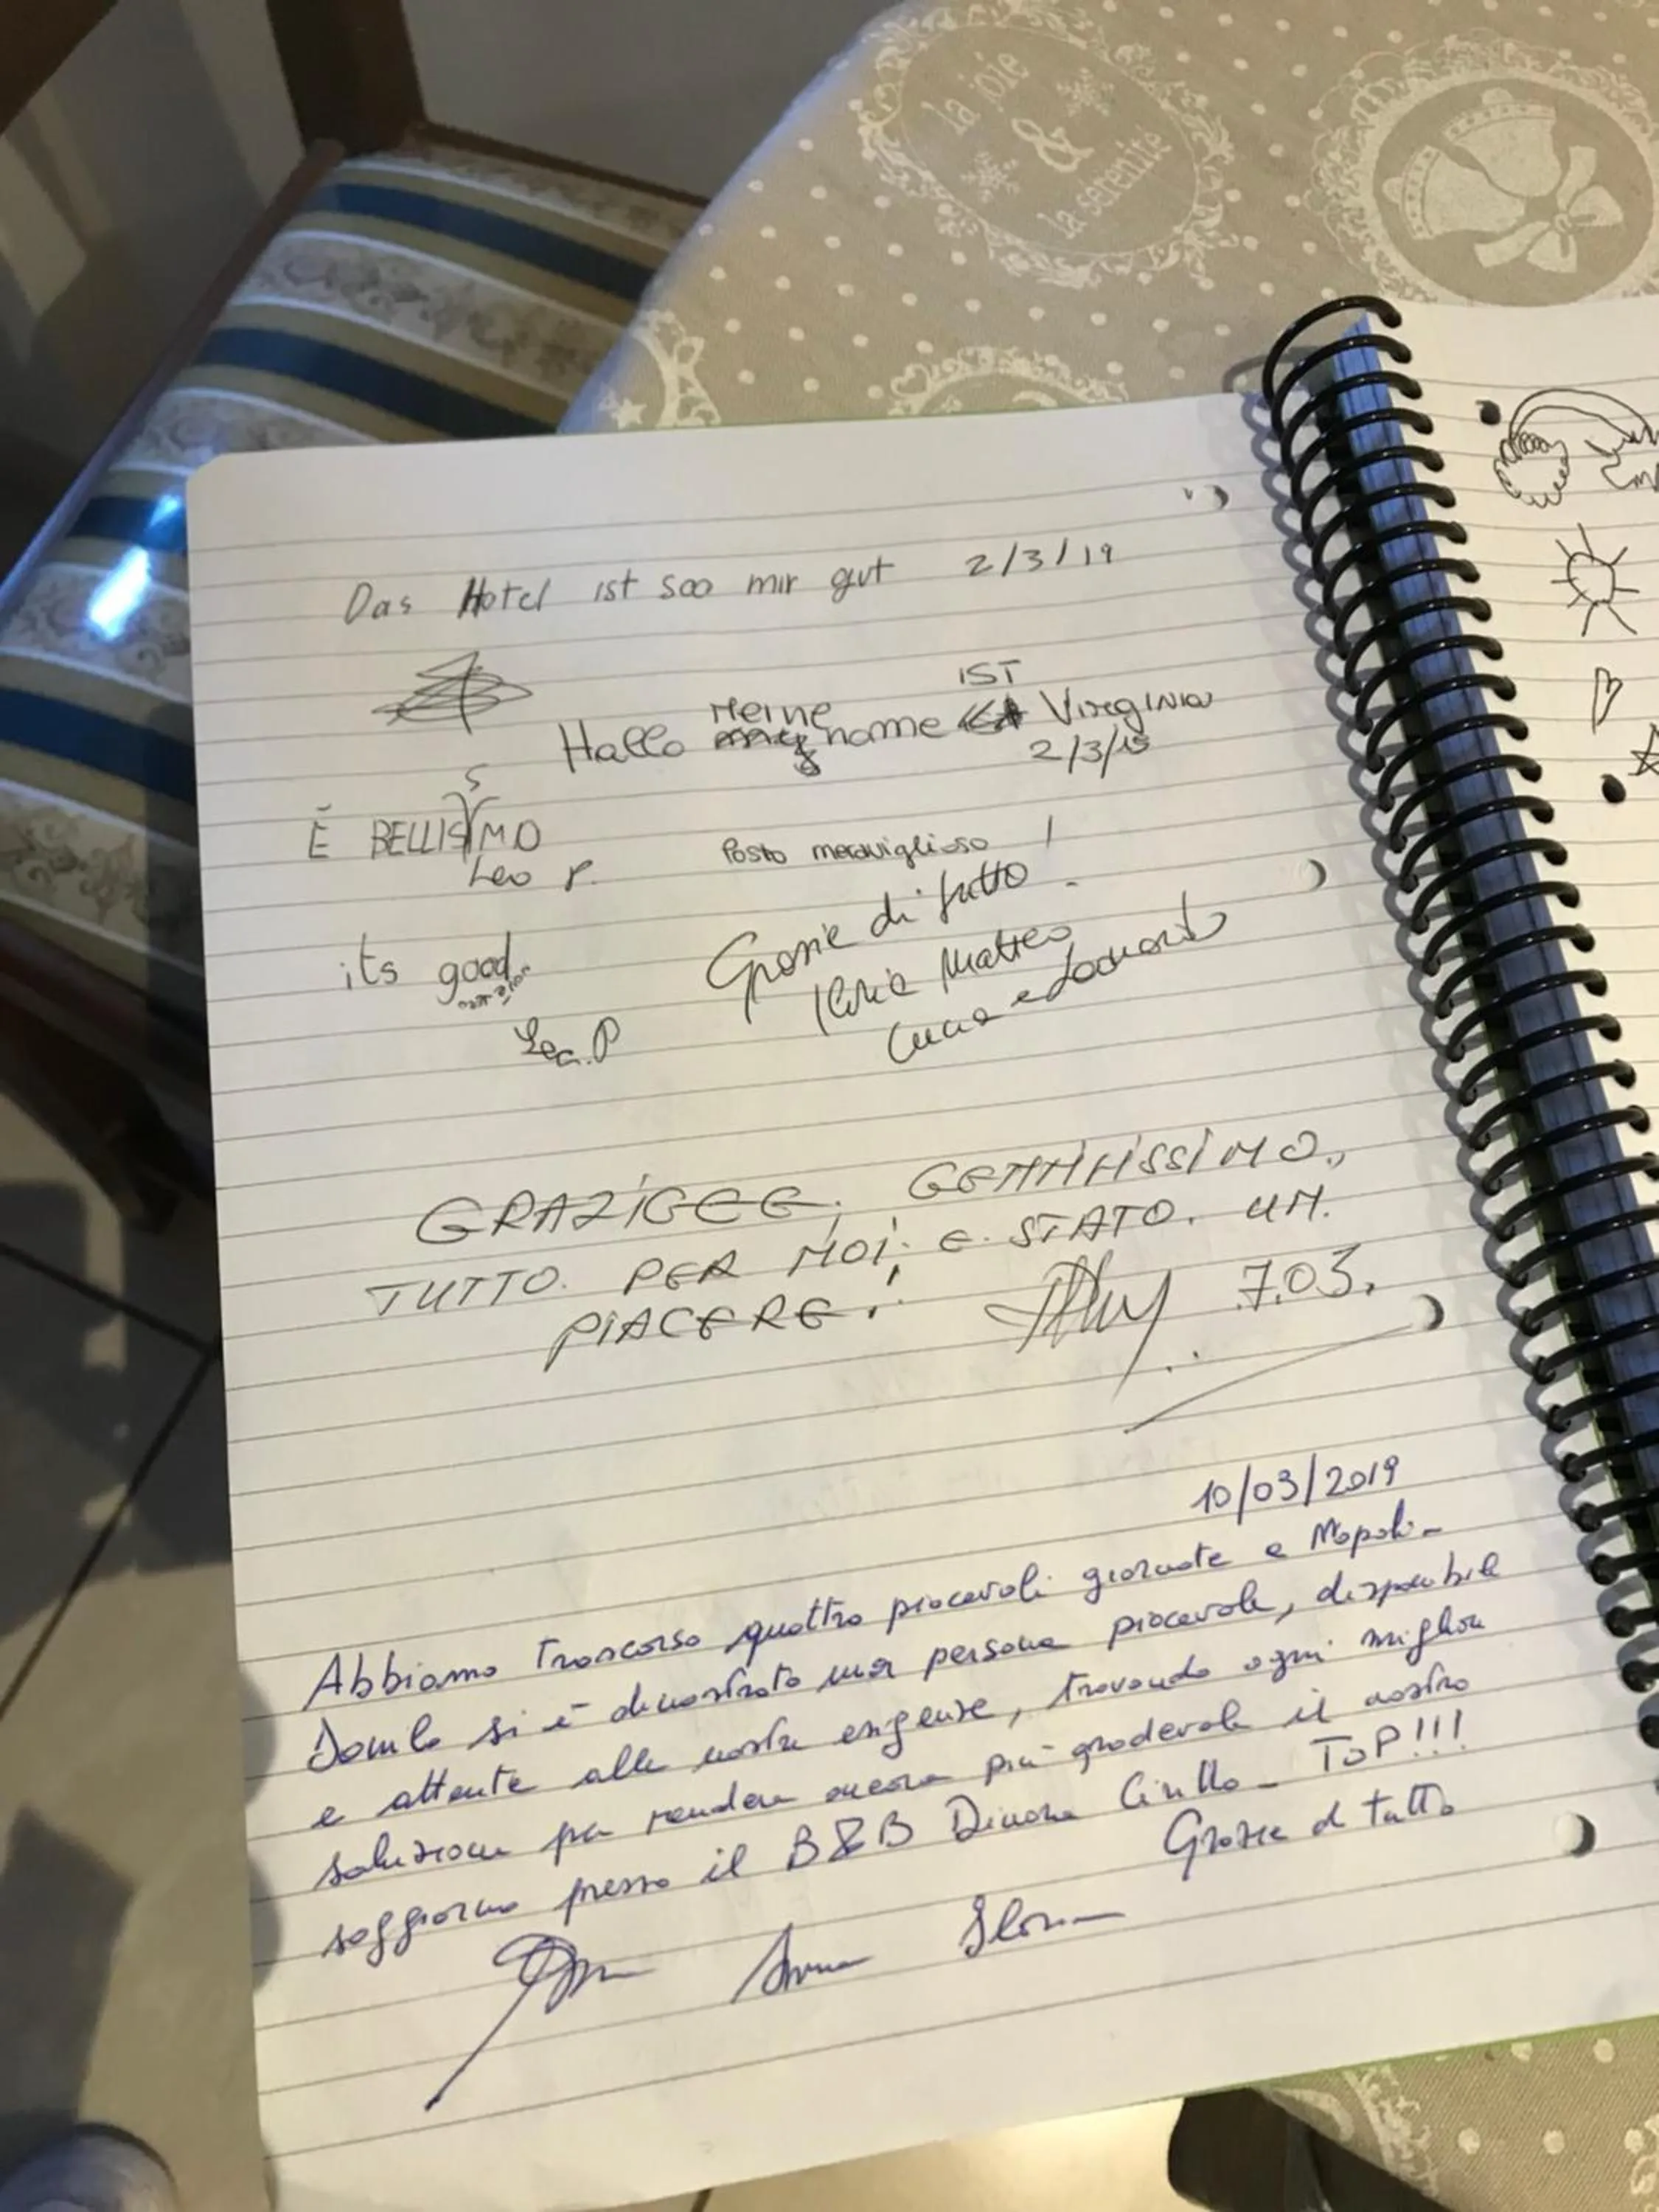 la joie
&
la serenité
Das Hotel ist soo mir gut 2/3/19
Hallo Meine name IST Virginia
2/3/19
È BELLISSIMO
Leo P.
Posto meraviglioso !
Grazie di tutto
Ilaria Matteo
Luca e Leonardo
its good
Leo.P
GRAZIEEE, GENTILISSIMO,
TUTTO. PER NOI, E. STATO. UN.
PIACERE! 7.03.
10/03/2019
Abbiamo trascorso quattro piacevoli giornate a Napoli-
Danilo si è dimostrato una persona piacevole, disponibile
e attente alle nostre esigenze, trovando ogni miglior
soluzione per rendere ancora più gradevole il nostro
soggiorno presso il B&B Dimora Cirillo- TOP!!!
Grazie d tutto